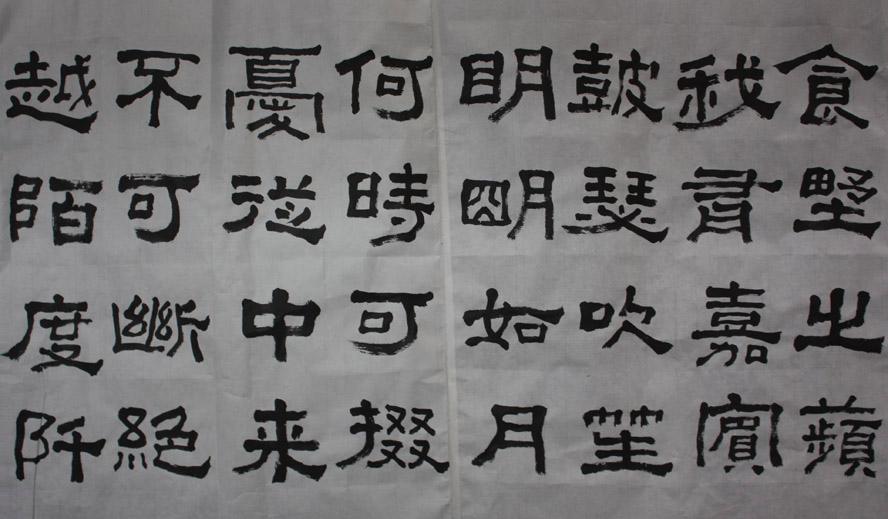 食野之蘋
我有嘉賓
鼓瑟吹笙
明明如月
何時可掇
憂從中来
不可斷絶
越陌度阡